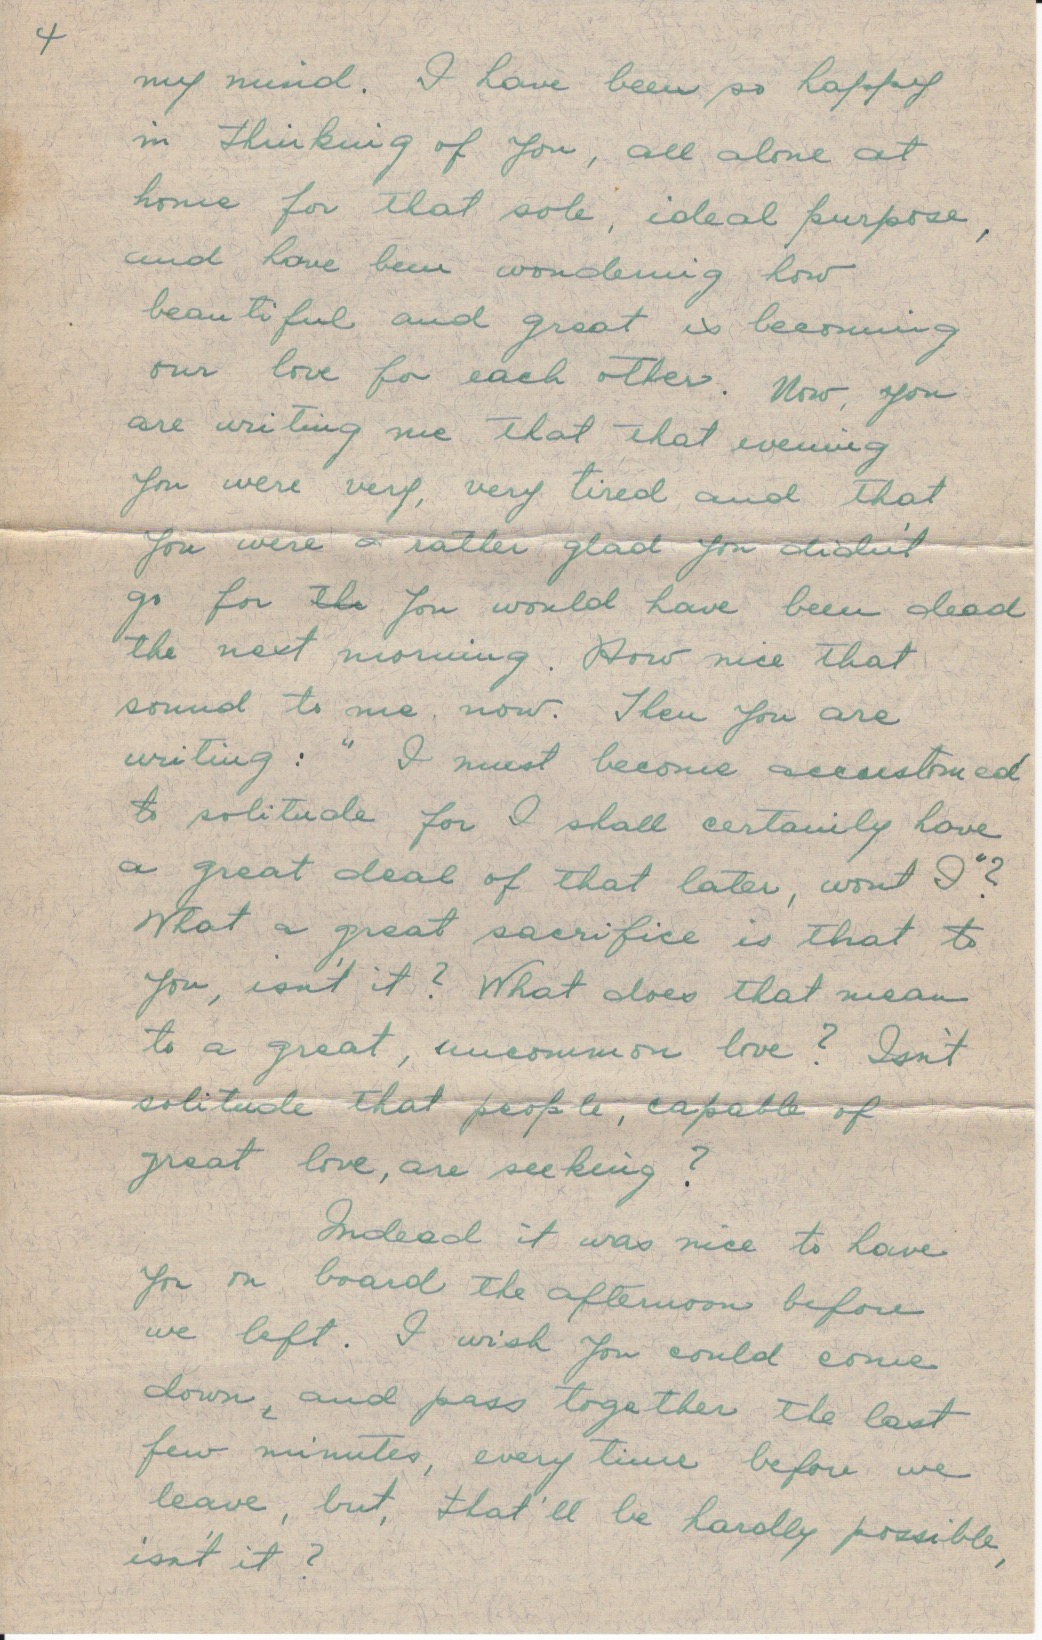 4
my mind. I have been so happy
in thinking of you, all alone at
home for that sole, ideal purpose,
and have been wondering how
beautiful and great is becoming
our love for each other. Now, you
are writing me that that evening
you were very, very tired and that
you were a rather glad you didn't
go for the you would have been dead
the next morning. How nice that
sound to me now. Then you are
writing: " I must become accustomed
to solitude for I shall certainly have
a great deal of that later, wont I"?
What a great sacrifice is that to
you, isn't it? What does that mean
to a great, uncommon love? Isn't
solitude that people, capable of
great love, are seeking?
Indeed it was nice to have
you on board the afternoon before
we left. I wish you could come
down, and pass together the last
few minutes, every time before we
leave, but, that'll be hardly possible,
isn't it?